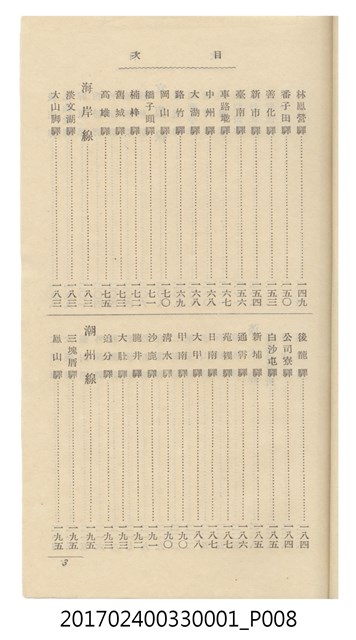 目次
林鳳營驛 一四九
番子田驛 一五〇
善化驛 一五三
新市驛 一五四
臺南驛 一五六
車路墘驛 一六七
中州驛 一六八
大湖驛 一六八
路竹驛 一六九
岡山驛 一七〇
橋子頭驛 一七一
楠梓驛 一七二
舊城驛 一七三
高雄驛 一七五
海岸線 一八三
淡文湖驛 一八三
大山脚驛 一八三
後龍驛 一八四
公司寮驛 一八四
白沙屯驛 一八五
新埔驛 一八五
通霄驛 一八六
苑裡驛 一八七
日南驛 一八七
大甲驛 一八八
甲南驛 一九〇
清水驛 一九〇
沙鹿驛 一九一
龍井驛 一九二
大肚驛 一九三
追分驛 一九三
潮州線 一九五
三塊厝驛 一九五
鳳山驛 一九五
3
201702400330001_P008